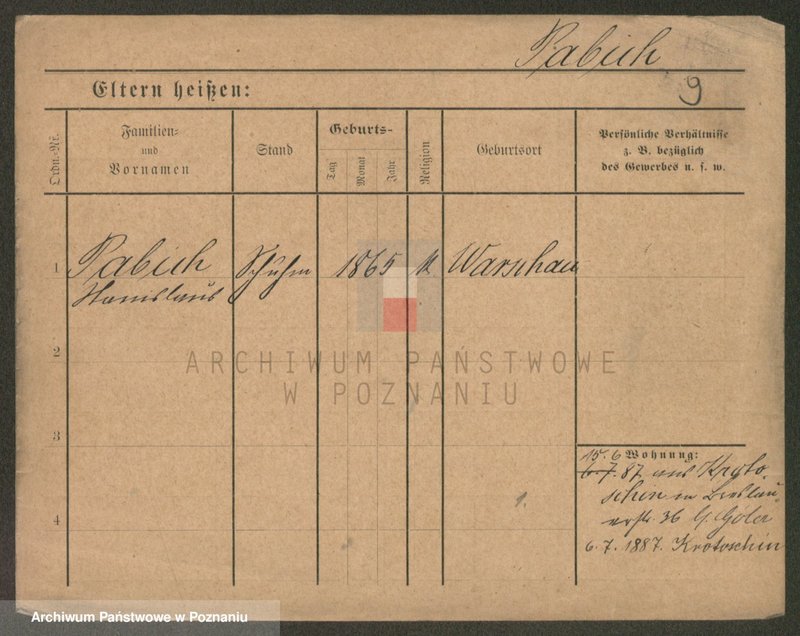 Pabich
9
Eltern heißen:
Ordn.-Nr.
Familien-
und
Vornamen
Stand
Geburts-
Tag
Monat
Jahr
Religion
Geburtsort
Persönliche Verhältnisse
z. B. bezüglich
des Gewerbes u. s. w.
1
Pabich
Stanislaus
Schuhm
1865
k
Warschau
2
ARCHIWUM PAŃSTWOWE
W POZNANIU
3
Wohnung:
15. 6
6. 7. 87 aus Kroto-
schin in Breslau-
erstr. 36
6. 7. 1887. Krotoschin
4
1.
Archiwum Państwowe w Poznaniu